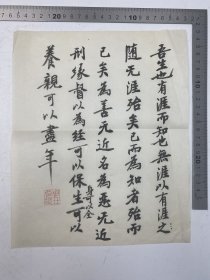 吾生也有涯而知也無涯以有涯之
随无涯殆矣已而為知者殆而
已矣為善无近名為惡无近
刑緣督以為經可以保生可以
身可以全
養親可以盡年